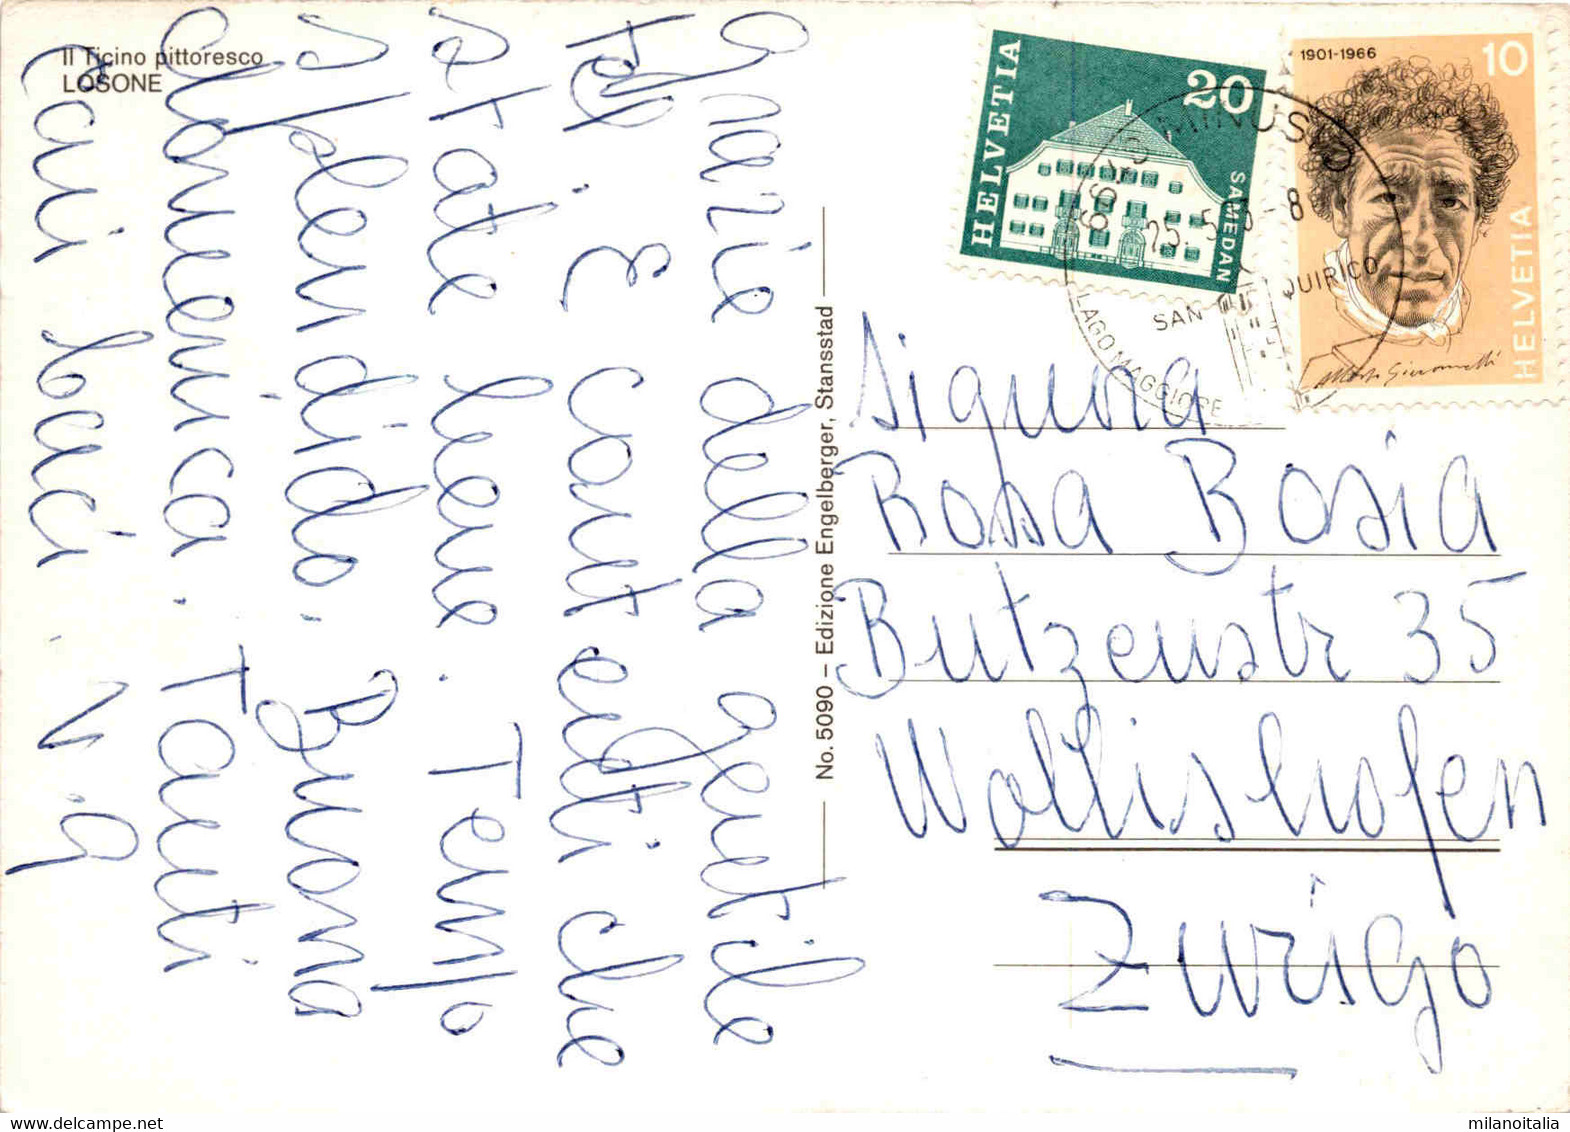 Il Ticino pittoresco
LOSONE
Grazie della gentile
tel. E contenti che
state bene. Tempo
splendido. Buona
domenica. Tanti
cari baci. N. G
No. 5090 – Edizione Engelberger, Stansstad
HELVETIA
20
SAMEDAN
1901-1966
10
HELVETIA
6648 MINUSIO
25. 5. - 8
SAN QUIRICO
LAGO MAGGIORE
Signora
Rosa Bosia
Butzenstr 35
Wollishofen
Zurigo
milanoitalia